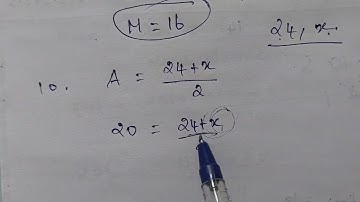 M = 16
24, x
10. A = 24+x / 2
20 = 24+x